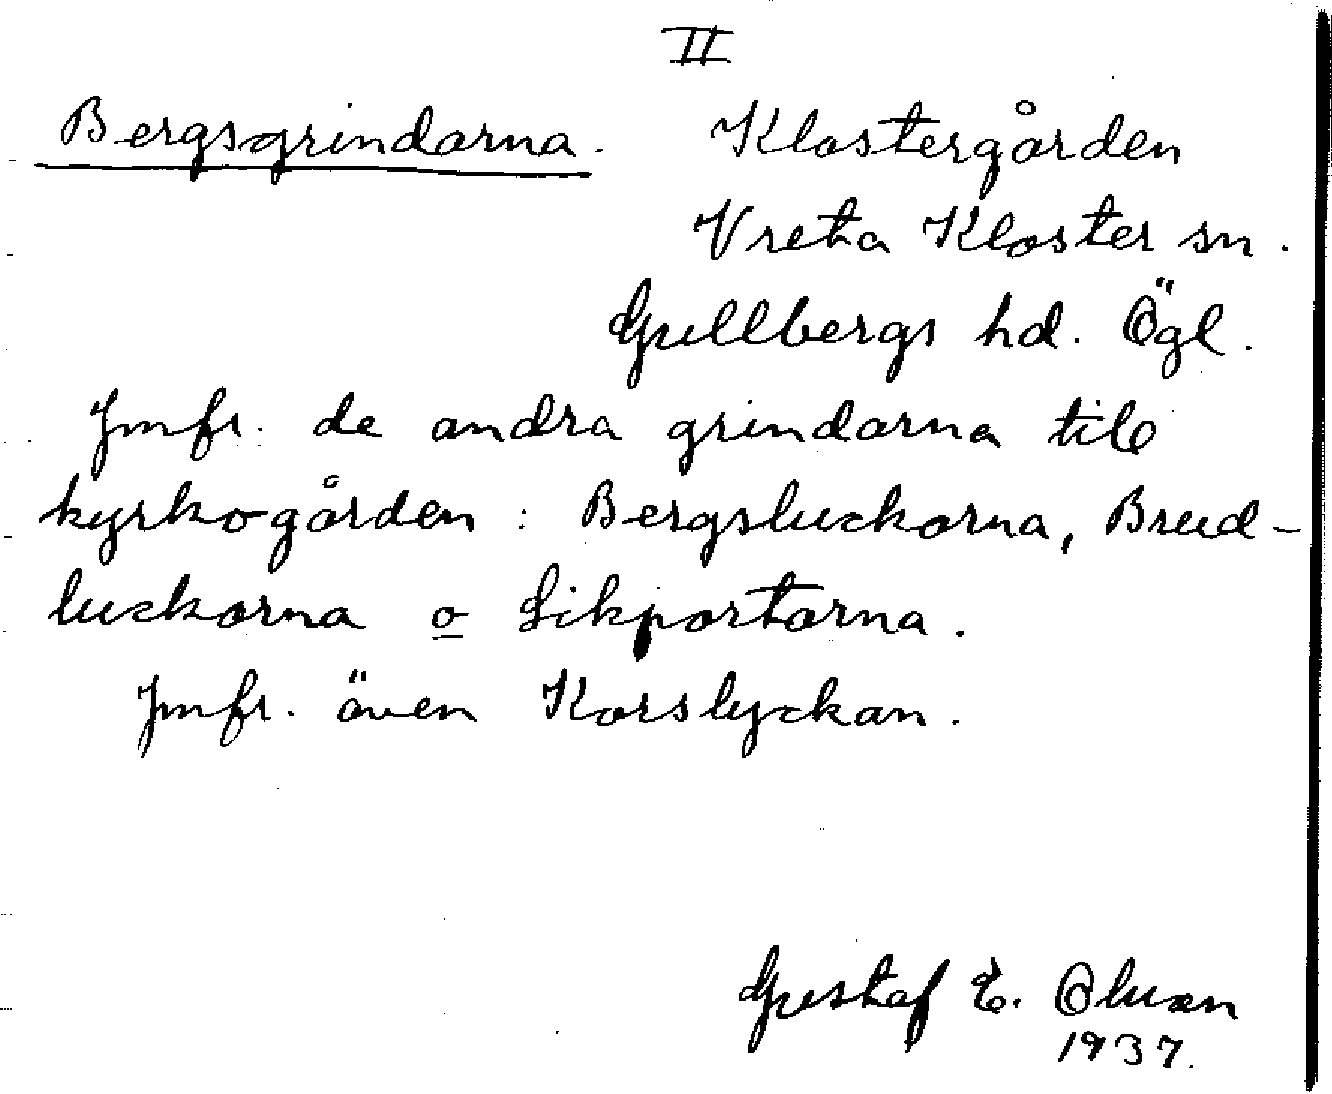 II
Bergsgrindarna. Klostergården
Vreta Kloster sn.
Gullbergs hd. Ögl.
Jmfr. de andra grindarna till
kyrkogården: Bergsluckorna, Brud-
luckorna o Likportarna.
Jmfr. även Korslyckan.
Gustaf E.
1937.